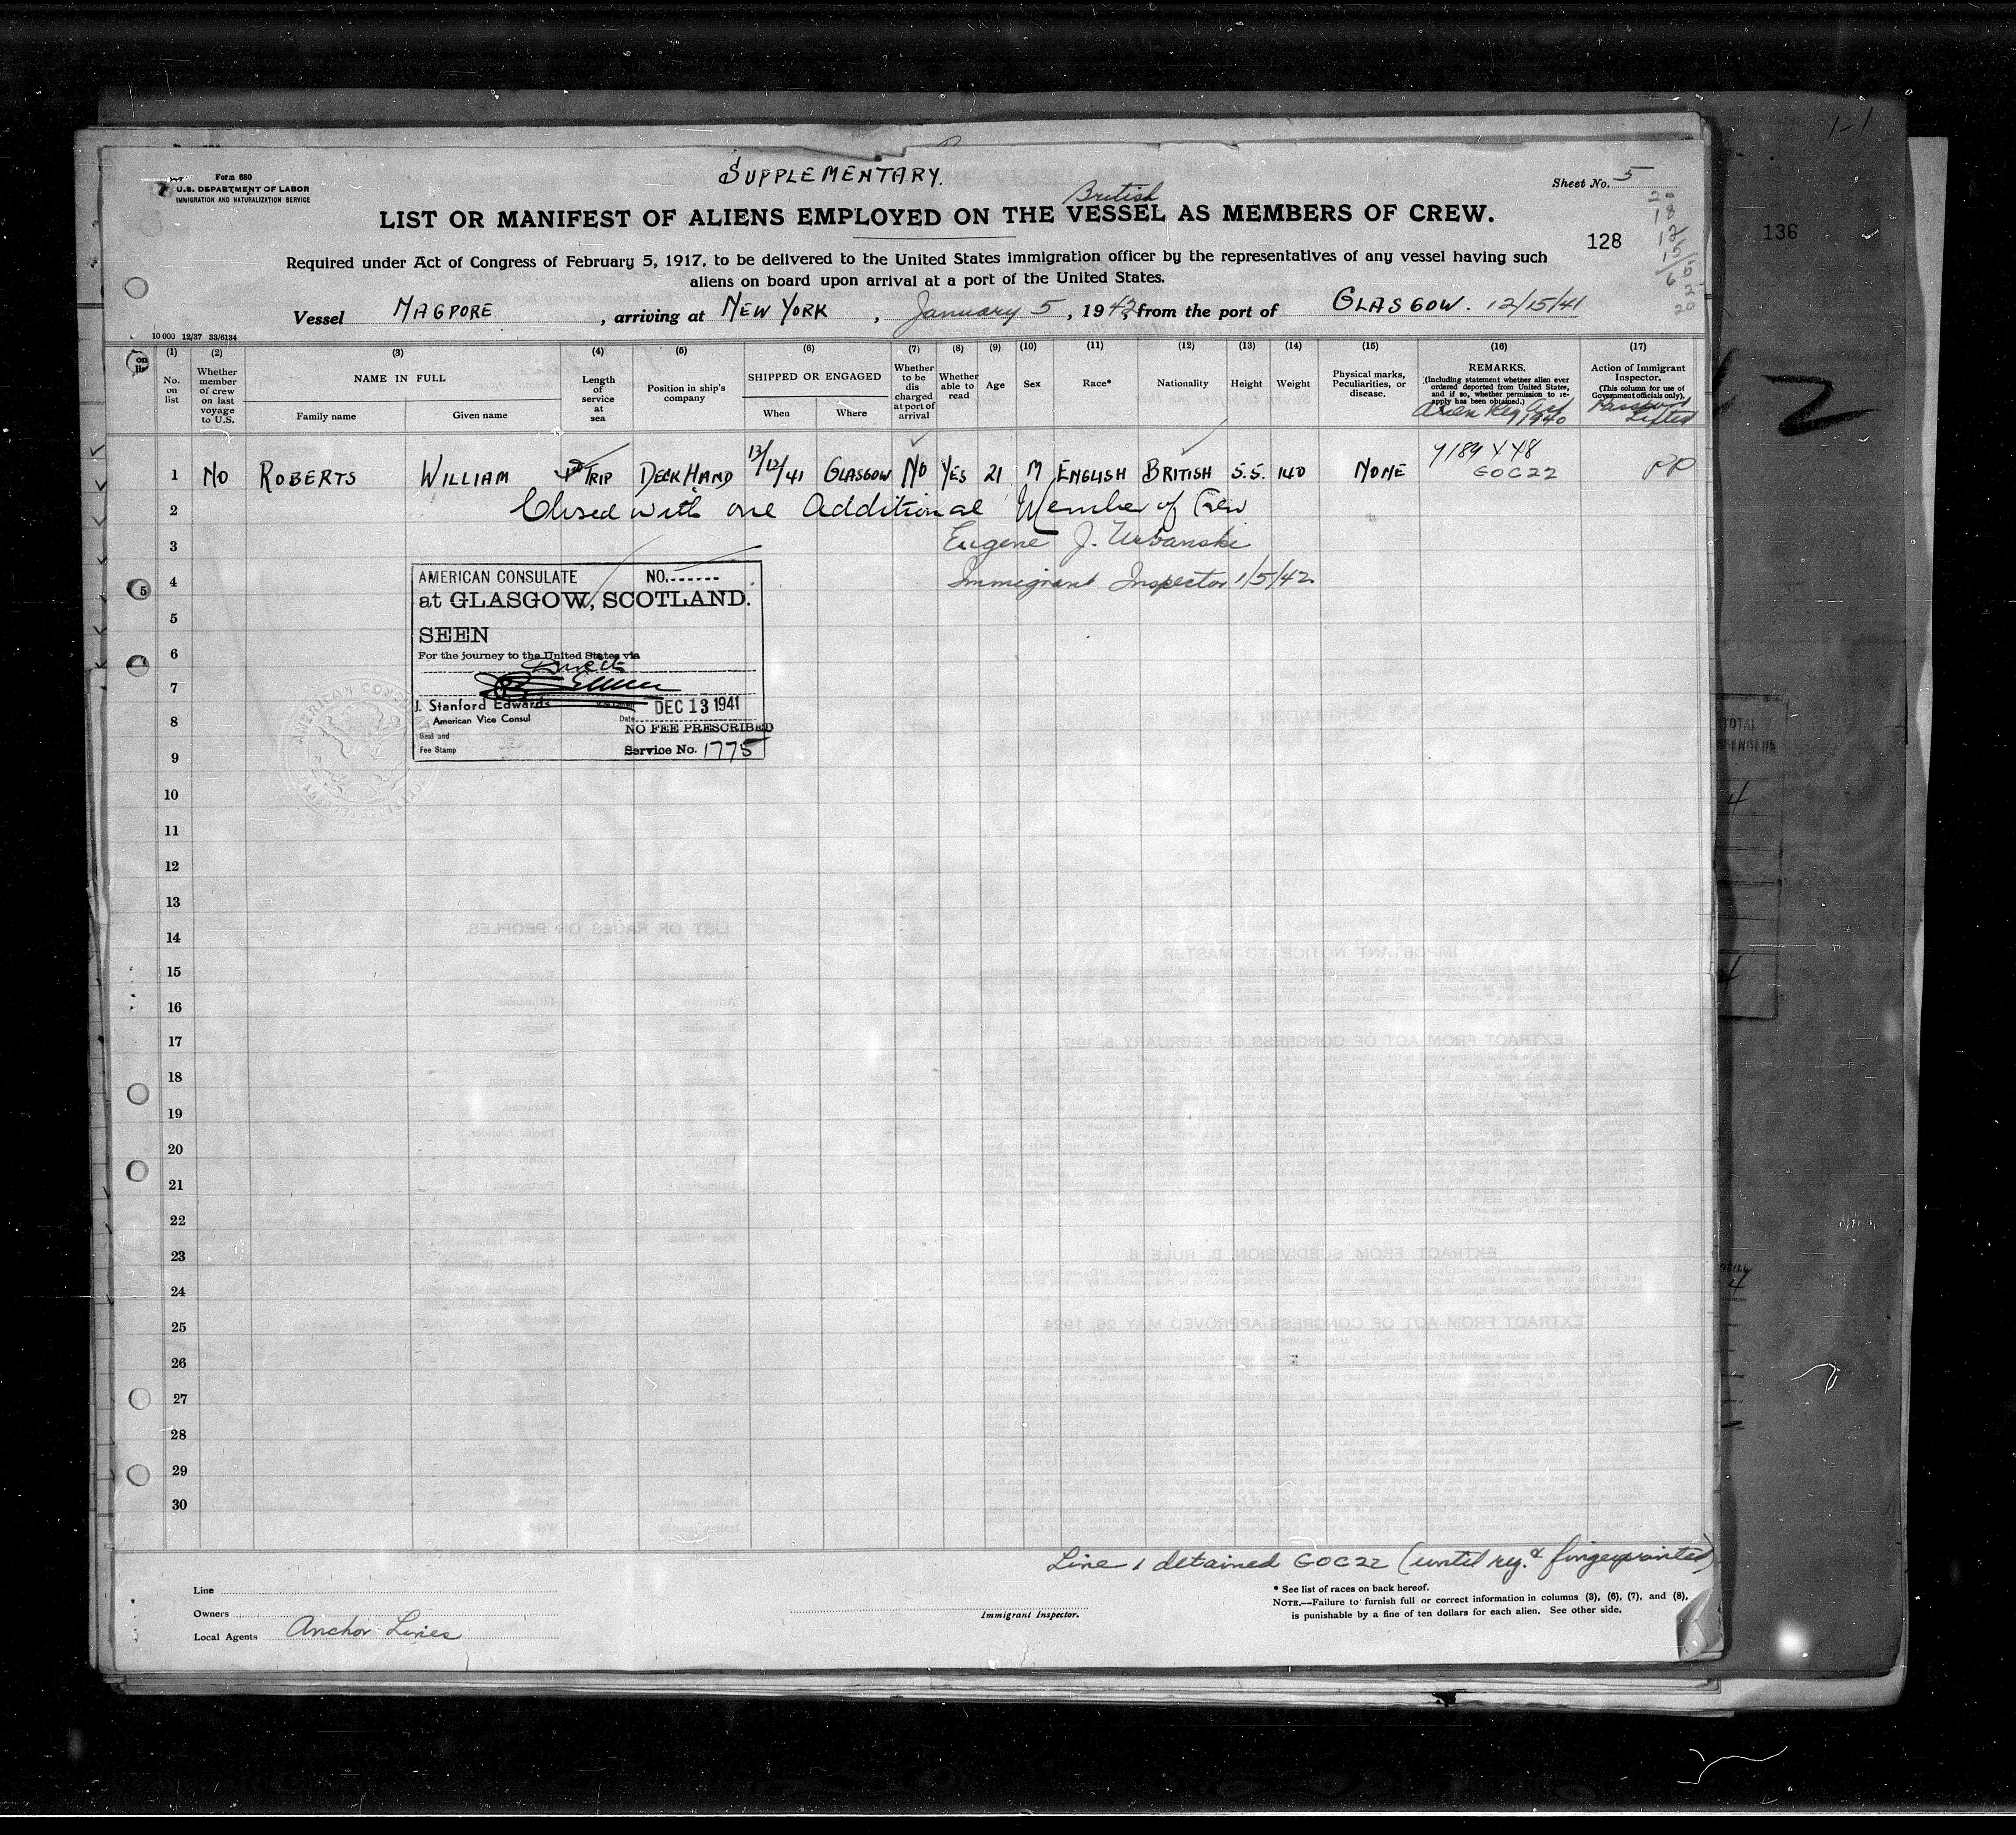 1-1
SUPPLEMENTARY.
Form 680
U.S. DEPARTMENT OF LABOR
IMMIGRATION AND NATURALIZATION SERVICE
Sheet No. 5
British
LIST OR MANIFEST OF ALIENS EMPLOYED ON THE VESSEL AS MEMBERS OF CREW.
128
136
Required under Act of Congress of February 5, 1917, to be delivered to the United States immigration officer by the representatives of any vessel having such
aliens on board upon arrival at a port of the United States.
Vessel MAGPORE, arriving at NEW YORK, January 5, 1942, from the port of GLASGOW. 12/15/41
10 000 12/37 33/6134
(1) (2) (3) (4) (5) (6) (7) (8) (9) (10) (11) (12) (13) (14) (15) (16) (17)
No. on list
Whether member of crew on last voyage to U.S.
NAME IN FULL
Family name Given name
Length of service at sea
Position in ship's company
SHIPPED OR ENGAGED
When Where
Whether to be dis charged at port of arrival
Whether able to read
Age
Sex
Race*
Nationality
Height
Weight
Physical marks, Peculiarities, or disease.
REMARKS.
(Including statement whether alien ever ordered deported from United States, and if so, whether permission to re-apply has been obtained.)
Alien Reg Act 1940
Action of Immigrant Inspector.
(This column for use of Government officials only).
Passport Lifted
1 NO ROBERTS WILLIAM TRIP DECK HAND 13/12/41 GLASGOW NO YES 21 M ENGLISH BRITISH 5.5. 140 NONE 7189448 GOC22 PP
2 Closed with one Additional Member of Crew
3 Eugene J. Urbanski
4 Immigrant Inspector 1/5/42
AMERICAN CONSULATE NO.
at GLASGOW, SCOTLAND.
SEEN
For the journey to the United States via
Direct
J. Stanford Edwards
American Vice Consul
Date DEC 13 1941
NO FEE PRESCRIBED
Seal and
Fee Stamp
Service No. 1775
5
6
7
8
9
10
11
12
13
14
15
16
17
18
19
20
21
22
23
24
25
26
27
28
29
30
Line 1 detained GOC22 (until reg. & fingerprinted)
Line
Owners
Local Agents Anchor Lines
Immigrant Inspector.
* See list of races on back hereof.
NOTE.—Failure to furnish full or correct information in columns (3), (6), (7), and (8),
is punishable by a fine of ten dollars for each alien. See other side.